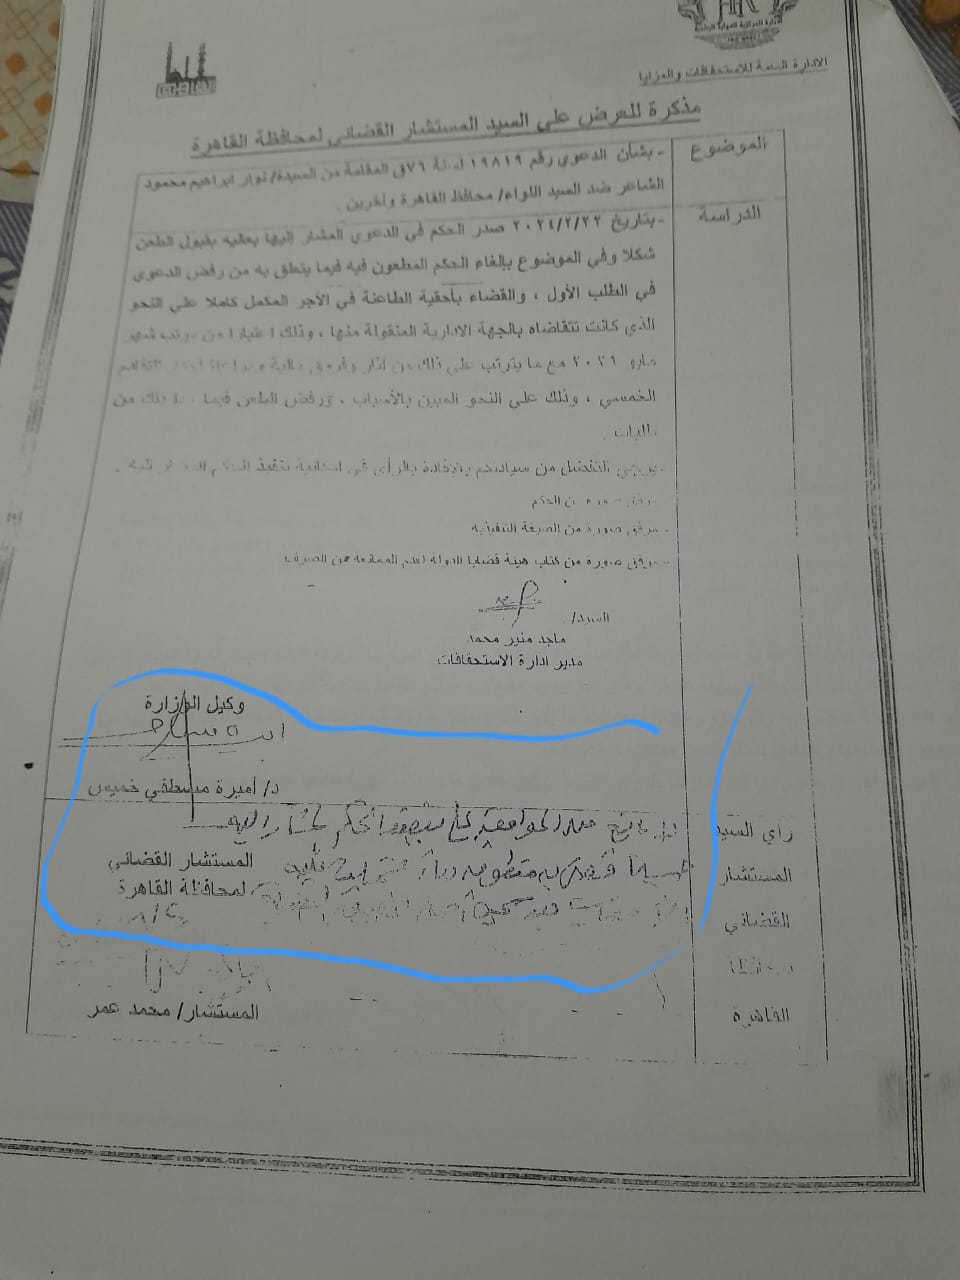 الادارة العامة للاستحقاقات والمزايا
مذكرة للعرض علي السيد المستشار القضائي لمحافظة القاهرة
الموضوع
- بشأن الدعوي رقم ١٩٨١٩ لسنة ٧٦ق المقامة من السيدة/ نوار ابراهيم محمود
الشاعر ضد السيد اللواء/ محافظ القاهرة وآخرين .
الدراسة
- بتاريخ ٢٠٢٤/٢/٢٢ صدر الحكم في الدعوي المشار إليها بعاليه بقبول الطعن
شكلا وفي الموضوع بإلغاء الحكم المطعون فيه فيما يتعلق به من رفض الدعوي
في الطلب الأول ، والقضاء بأحقية الطاعنة في الأجر المكمل كاملا علي النحو
الذي كانت تتقاضاه بالجهة الادارية المنقولة منها ، وذلك اعتبارا من مرتب شهر
مايو ٢٠٢١ مع ما يترتب علي ذلك من اثار وفروق مالية و مراعاة احكام التقادم
الخمسي ، وذلك علي النحو المبين بالأسباب ، ورفض الطعن فيما عدا ذلك من
طلبات .
- يرجي التفضل من سيادتكم بالإفادة بالرأي في امكانية تنفيذ الحكم المشار اليه .
- مرفق صورة من الحكم
- مرفق صورة من الصيغة التنفيذية
- مرفق صورة من كتاب هيئة قضايا الدولة لعدم الممانعة من الصرف
السيد/
ماجد منير محمد
مدير ادارة الاستحقاقات
وكيل الوزارة
د/ أميرة مصطفي خميس
رأي السيد
المستشار
القضائي
لمحافظة
القاهرة
لا مانع من الموافقة علي تنفيذ الحكم المشار اليه
المستشار القضائي
لمحافظة القاهرة
المستشار/ محمد عمر